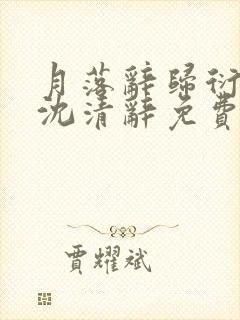 月落辭歸衍
沈清辭免費
賈耀斌